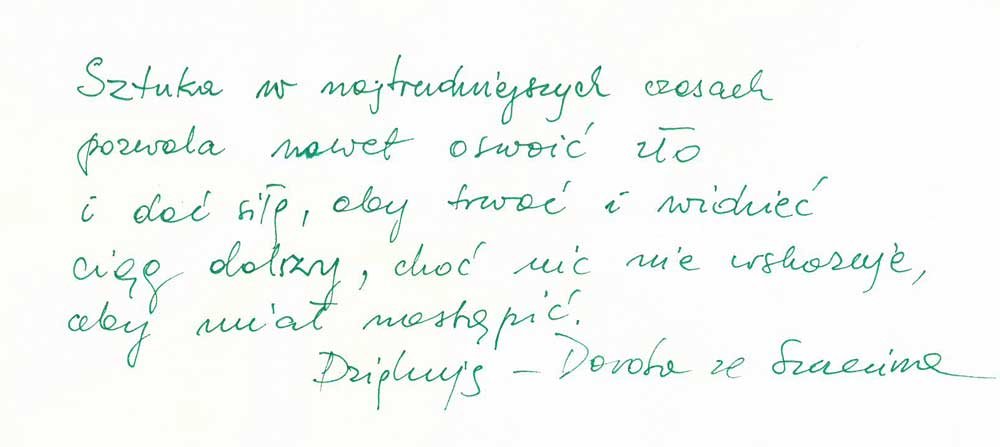 Sztuka w najtrudniejszych czasach
pozwala nawet oswoić zło
i dać siłę, aby trwać i widzieć
ciąg dalszy, choć nic nie wskazuje,
aby miał nastąpić.
Dziękuję – Dorota ze Szczecina